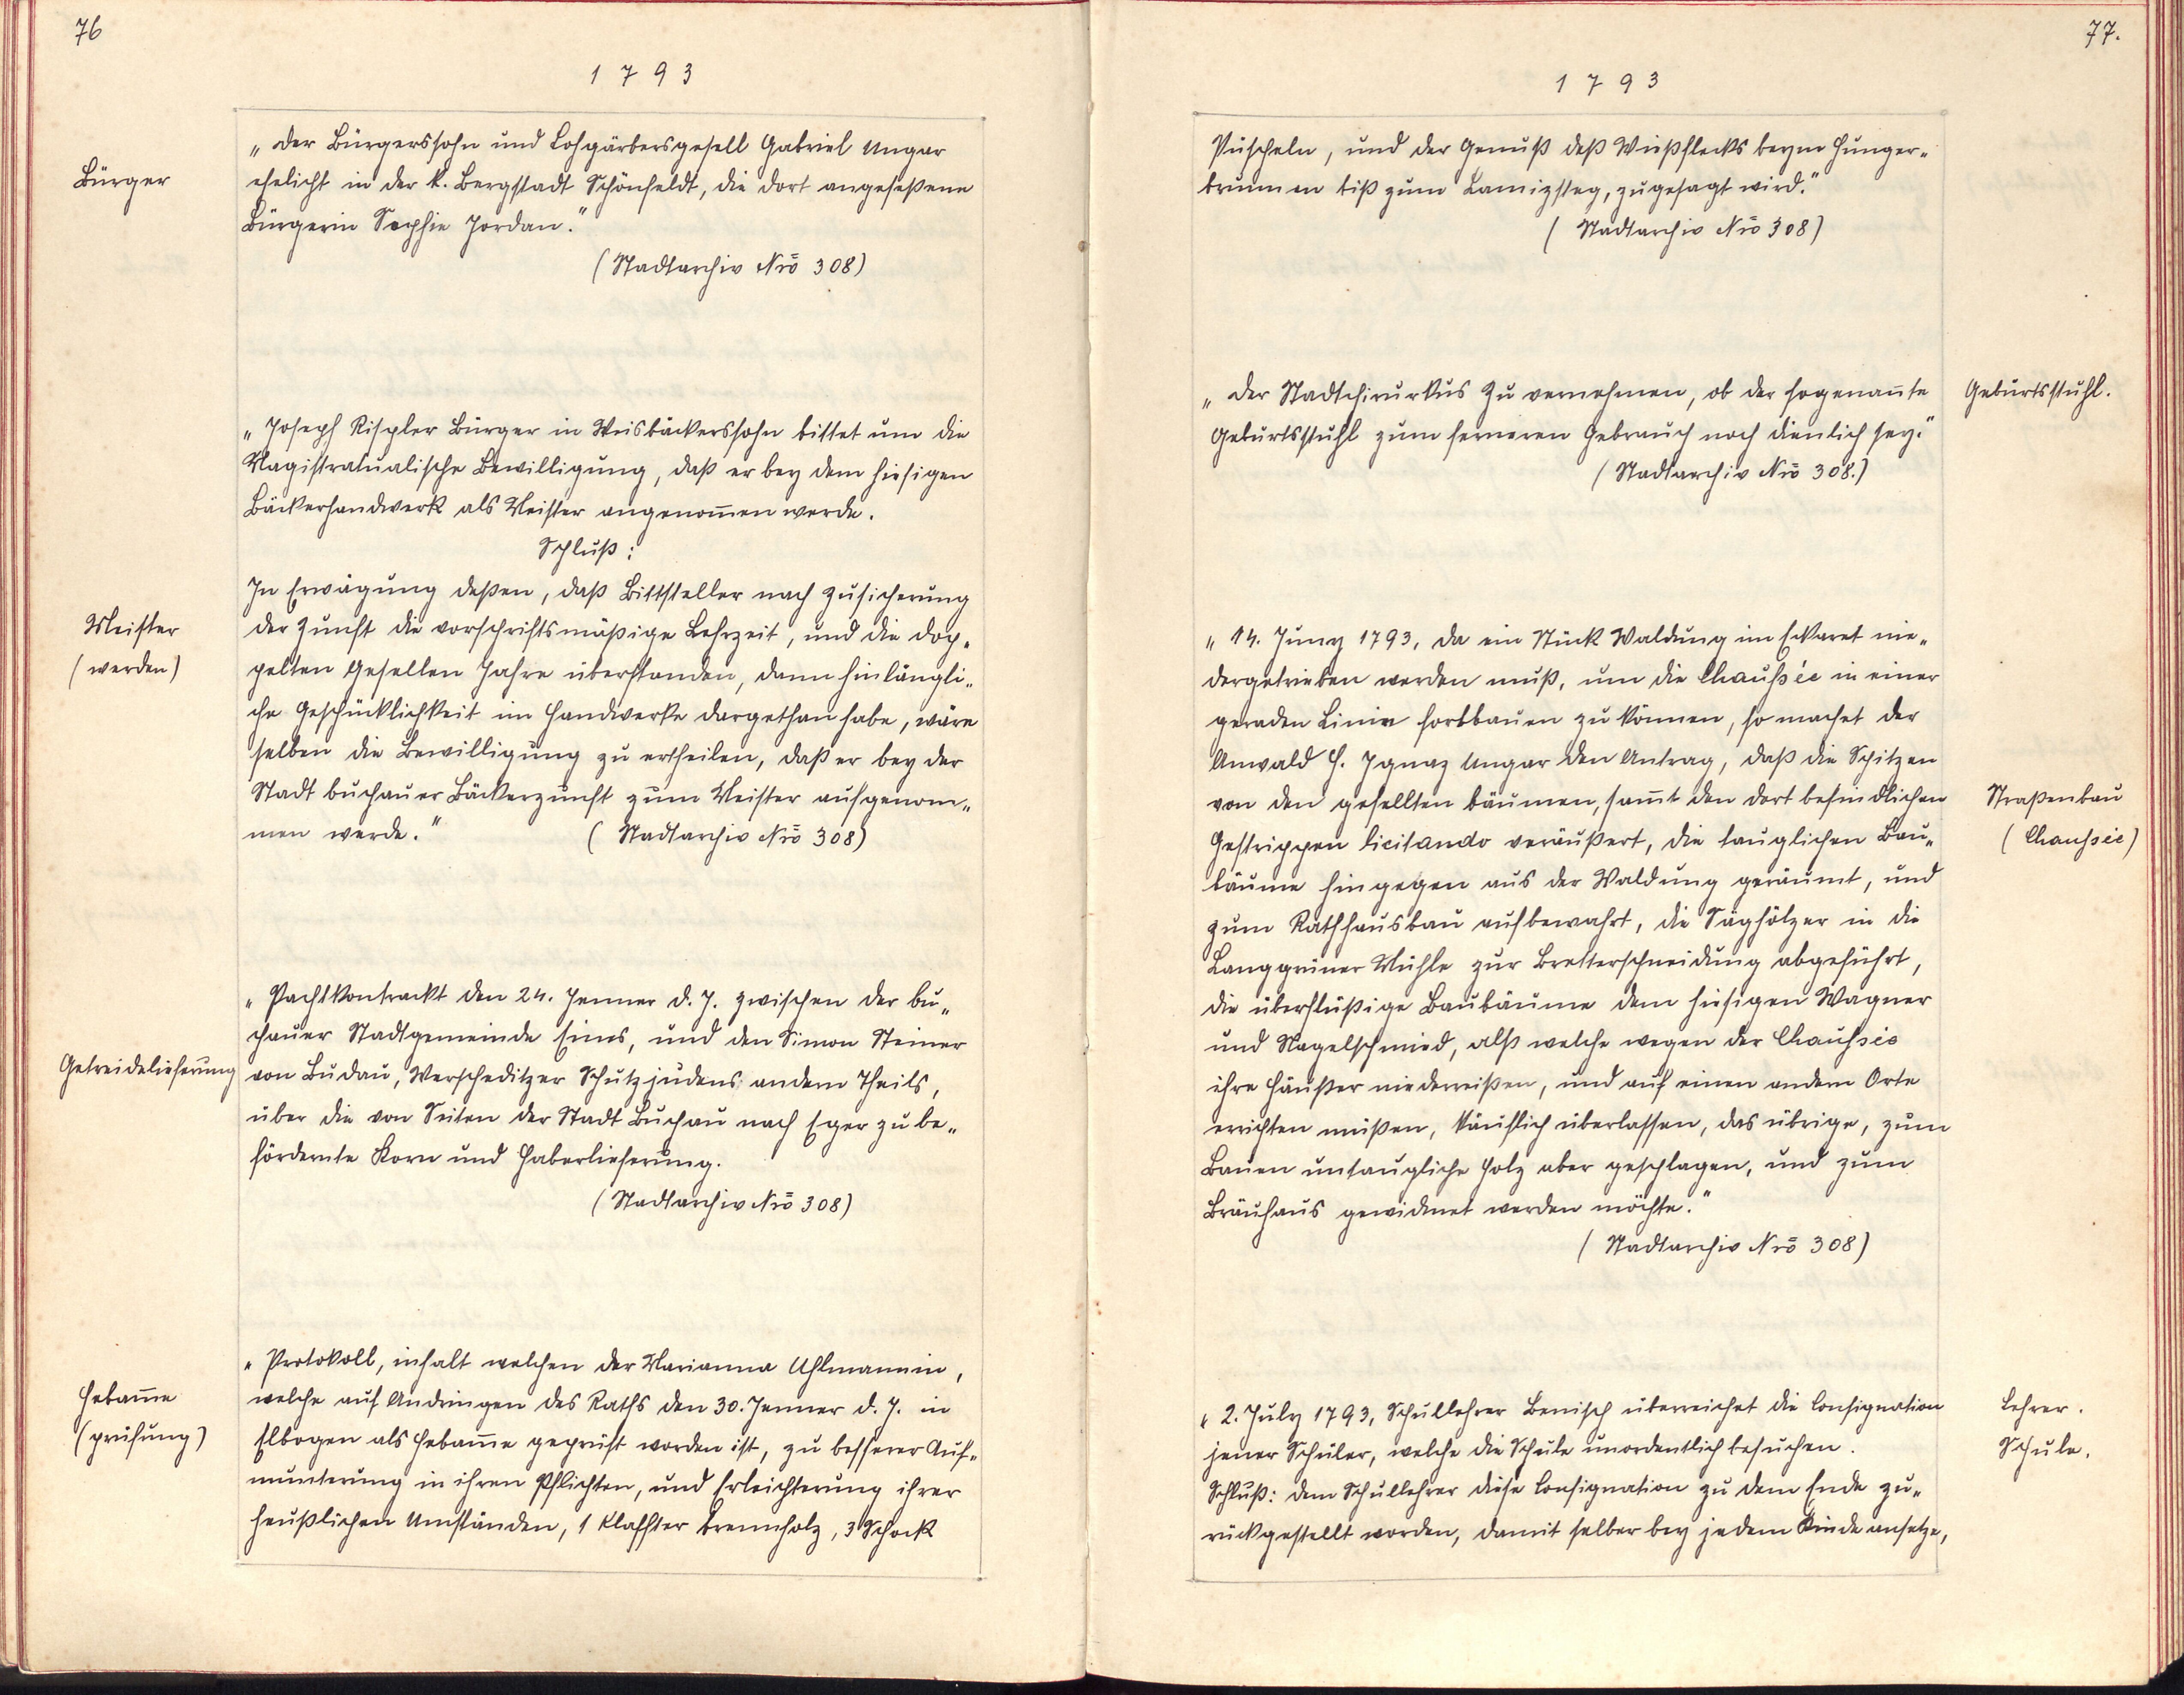 76
1793
Bürger
„Der Bürgerssohn und Lohgärbersgesell Gabriel Ungar
ehelicht in der k. Bergstadt Schönfeldt, die dort angeseßene
Bürgerin Sophie Jordan."
(Stadtarchiv Nrō 308)
„Joseph Rispler Bürger in Weisbäckerssohn bittet um die
Magistratualische Bewilligung, daß er bey dem hiesigen
Bäckerhandwerk als Meister angenom̄en werde.
Schluß:
In Erwägung deßen, daß Bittsteller nach Zusicherung
Meister
der Zunft die vorschriftsmäßige Lehrzeit, und die dop„
(werden)
pelten Gesellen Jahre überstanden, dann hinlängli„
che Geschücklichkeit im Handwerke dargethan habe, wäre
selben die Bewilligung zu ertheilen, daß er bey der
Stadt buchauer Bäckerzunft zum Meister aufgenom„
men werde." (Stadtarchiv Nrō 308)
„Pachtkontrackt den 24. Jenner d. J. zwischen der bu„
chauer Stadtgemeinde Eines, und den Simon Steiner
Getreidelieferung
von Budau, Werscheditzer Schutzjudens andern Theils,
über die von Seiten der Stadt Buchau nach Eger zu be„
fördernte Korn und Haberlieferung.
(Stadtarchiv Nrō 308)
„Protokoll, inhalt welchen der Marianna Uhlmannin,
Hebam̄e
welche auf Andringen des Raths den 30. Jenner d. J. in
(prüfung)
Elbogen als Hebam̄e geprüft worden ist, zu besserer Auf„
munterung in ihren Pflichten, und Erleichterung ihrer
heußlichen Umständen, 1 Klaffter Brennholz, 3 Schock
77.
1793
Püscheln, und der Genuß deß Wießflecks beym Hunger„
brunnen biß zum Lamizsteg, zugesagt wird."
(Stadtarchiv Nrō 308)
„Der Stadtchirurkus zu vernehmen, ob der sogenan̄te
Geburtsstuhl.
Geburtsstuhl zum ferneren Gebrauch noch dienlich sey."
(Stadtarchiv Nrō 308.)
„14. Juny 1793, da ein Stück Waldung im Eckaret nie„
dergetrieben werden muß, um die Chaussée in einer
geraden Linie fortbauen zu können, so machet der
Anwald H. Ignaz Ungar den Antrag, daß die Spitzen
von den gefellten bäumen, sam̄t den dort befindlichen
Straßenbau
Gestrippen licitando veräußert, die tauglichen Bau„
(Chaussée)
bäume hingegen aus der Waldung geräumt, und
zum Rathhausbau aufbewahrt, die Säghölzer in die
Langgrüner Mühle zur Bretterschneidung abgeführt,
die überflüßige Baubäume dem hiesigen Wagner
und Nagelschmied, alß welche wegen der Chaussée
ihre Häußer niederreißen, und auf einen andern Orte
errichten müßen, käuflich überlassen, das übrige, zum
Bauen untaugliche Holz aber geschlagen, und zum
Bräuhaus gewidmet werden möchte."
(Stadtarchiv Nrō 308)
„2. July 1793, Schullehrer Benisch überreichet die Consignation
Lehrer.
jener Schüler, welche die Schule unordentlich besuchen.
Schule.
Schluß: dem Schullehrer diese Consignation zu dem Ende zu„
rückgestellt worden, damit selber bey jedem Kinde ansetze,